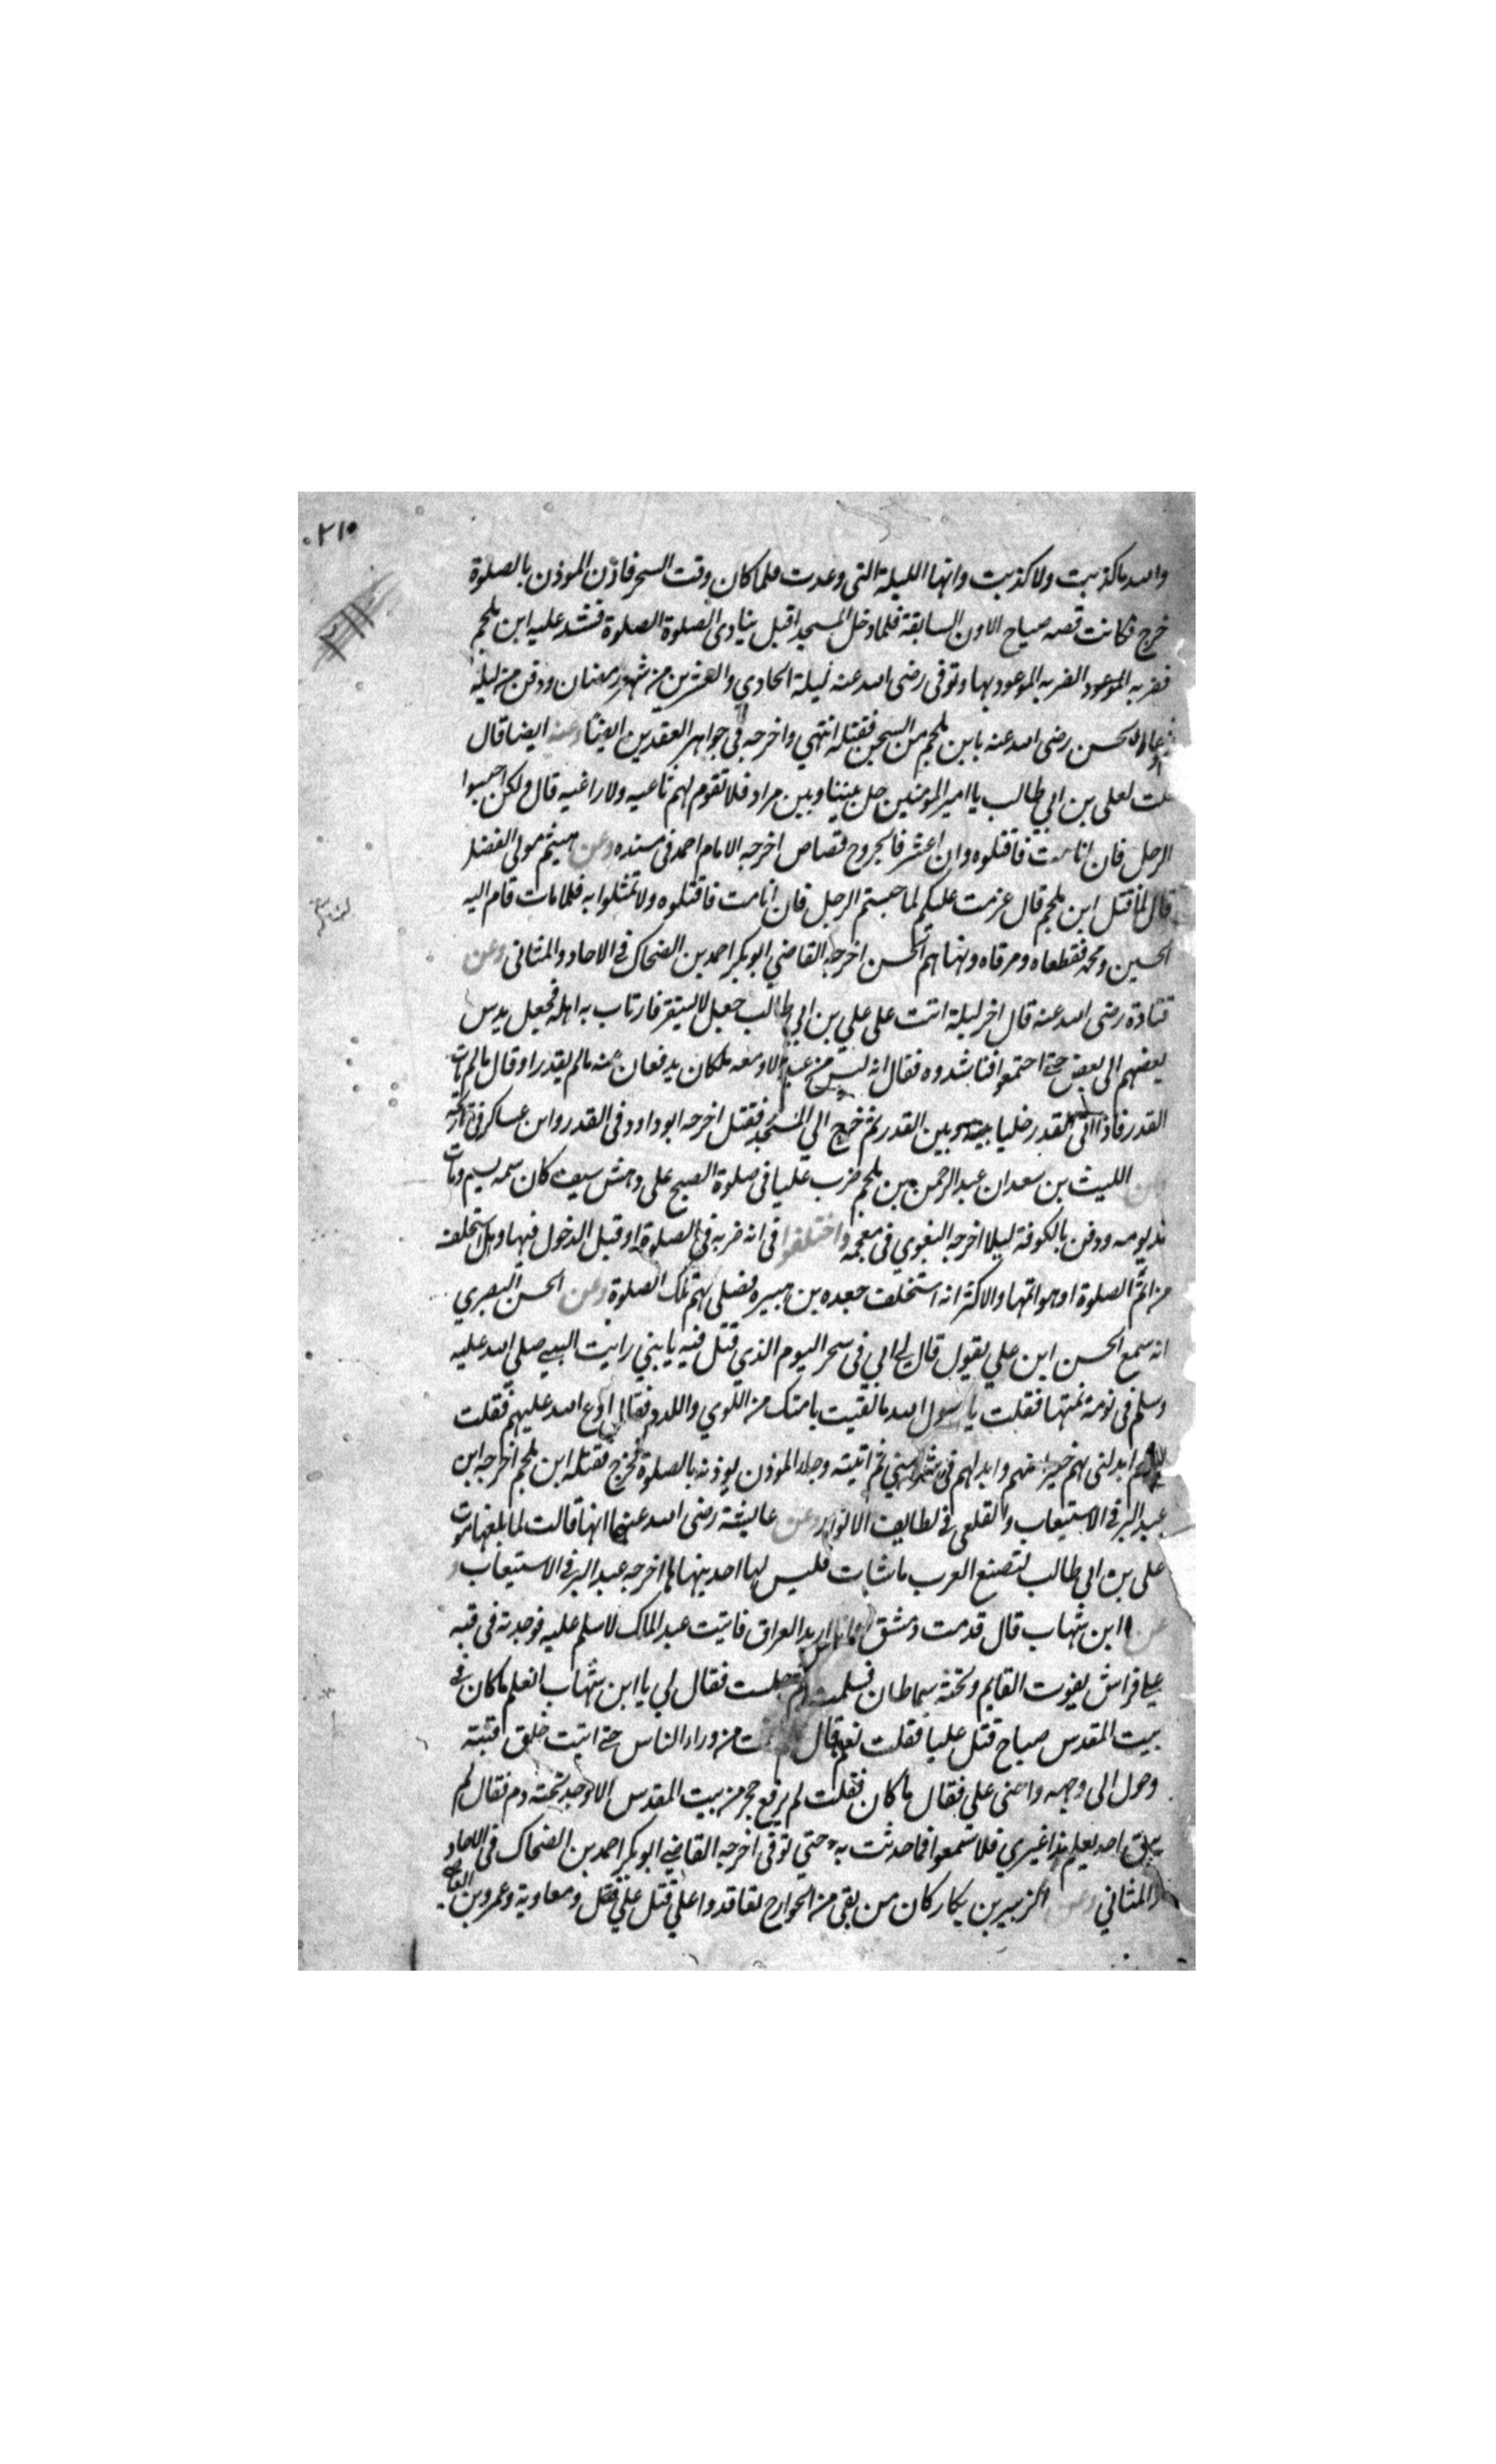 ٢١٠
والله ما كذبت ولا كذبت وانها الليلة التى وعدت فلما كان وقت السحر فاذن الموذن بالصلوة
خرج فكانت قصه صياح الاوز السابقة فلما دخل المسجد اقبل ينادى الصلوة الصلوة فشد عليه ابن ملجم
فضربه الموعود الضربه الموعود بها وتوفى رضى الله عنه ليلة الحادي والعشرين من شهر رمضان ودفن من ليلة
الحسن رضى الله عنه بابن ملجم من السجن فقتله انتهي واخرجه في جواهر العقدين ايضا وعنه ايضا قال
قلت لعلى بن ابي طالب يا امير المومنين خل بيننا وبين مراد فلا تقوم لهم ثاغيه ولا راغيه قال ولكن احبسوا
الرجل فان انا مت فاقتلوه وان اعش فالجروح قصاص اخرجه الامام احمد فى مسنده وعن هيثم مولى الفضل
قال لما قتل ابن ملجم قال عزمت عليكم لما حبستم الرجل فان انا مت فاقتلوه ولا تمثلوا به فلما مات قام اليه
الحسين ومحمد فقطعاه وحرقاه ونهاهم الحسن اخرجه القاضي ابو بكر احمد بن الضحاك في الاحاد والمثانى وعن
قتادة رضى الله عنه قال اخر ليلة اتت على علي بن ابي طالب جعل لا يستقر فارتاب به اهله فجعل يدس
بعضهم الى بعض حتى اجتمعوا فناشدوه فقال انه ليس من عبد الا ومعه ملكان يدفعان عنه مالم يقدر او قال مالم يات
القدر فاذا اتى القدر خليا بينه وبين القدر ثم خرج الي المسجد فقتل اخرجه ابو داود فى القدر وابن عساكر فى تاريخه
وعن الليث بن سعد ان عبد الرحمن بن ملجم ضرب عليا فى صلوة الصبح على دهش بسيف كان سمه بسم ومات
من يومه ودفن بالكوفة ليلا اخرجه البغوي فى معجمه واختلفوا فى انه ضربه في الصلوة او قبل الدخول فيها وهل استخلف
من اتم الصلوة او هو اتمها والاكثر انه استخلف جعده بن هبيره فصلى بهم تلك الصلوة وعن الحسن البصري
انه سمع الحسن ابن علي يقول قال لى ابي فى سحر اليوم الذي قتل فيه يا بني رايت النبي صلى الله عليه
وسلم فى نومة نمتها فقلت يا رسول الله ما لقيت بامتك من اللاوي واللدد فقال ادع الله عليهم فقلت
اللهم ابدلنى بهم خيرا منهم وابدلهم بى شرا مني ثم اتيته وجاء الموذن يوذنه بالصلوة فخرج فقتله ابن ملجم اخرجه ابن
عبد البر فى الاستيعاب والقلعى فى لطايف الانوار وعن عايشة رضى الله عنها انها قالت لما بلغها موت
على بن ابى طالب لتصنع العرب ما شات فليس لها احد ينهاها اخرجه عبد البر فى الاستيعاب و
عن ابن شهاب قال قدمت دمشق وانا اريد العراق فاتيت عبد الملك لاسلم عليه فوجدته فى قبه
على فراش يفوت القايم وتحته سماطان فسلمت ثم جلست فقال لي يا ابن شهاب اتعلم ما كان فى
بيت المقدس صباح قتل عليا فقلت نعم قال من وراء الناس حتى اتيت خلق القبة
وحول الى وجهه واحنى على فقال ما كان فقلت لم يرفع حجر من بيت المقدس الا وجد تحته دم فقال لم
يبق احد يعلم هذا غيري فلا تسمعوا فما حدثت به حتي توفى اخرجه القاضي ابو بكر احمد بن الضحاك فى الاحاد
والمثاني وعن الزبير بن بكار كان من بقى من الخوارج تعاقدوا على قتل علي ومعاوية وعمرو بن العاص